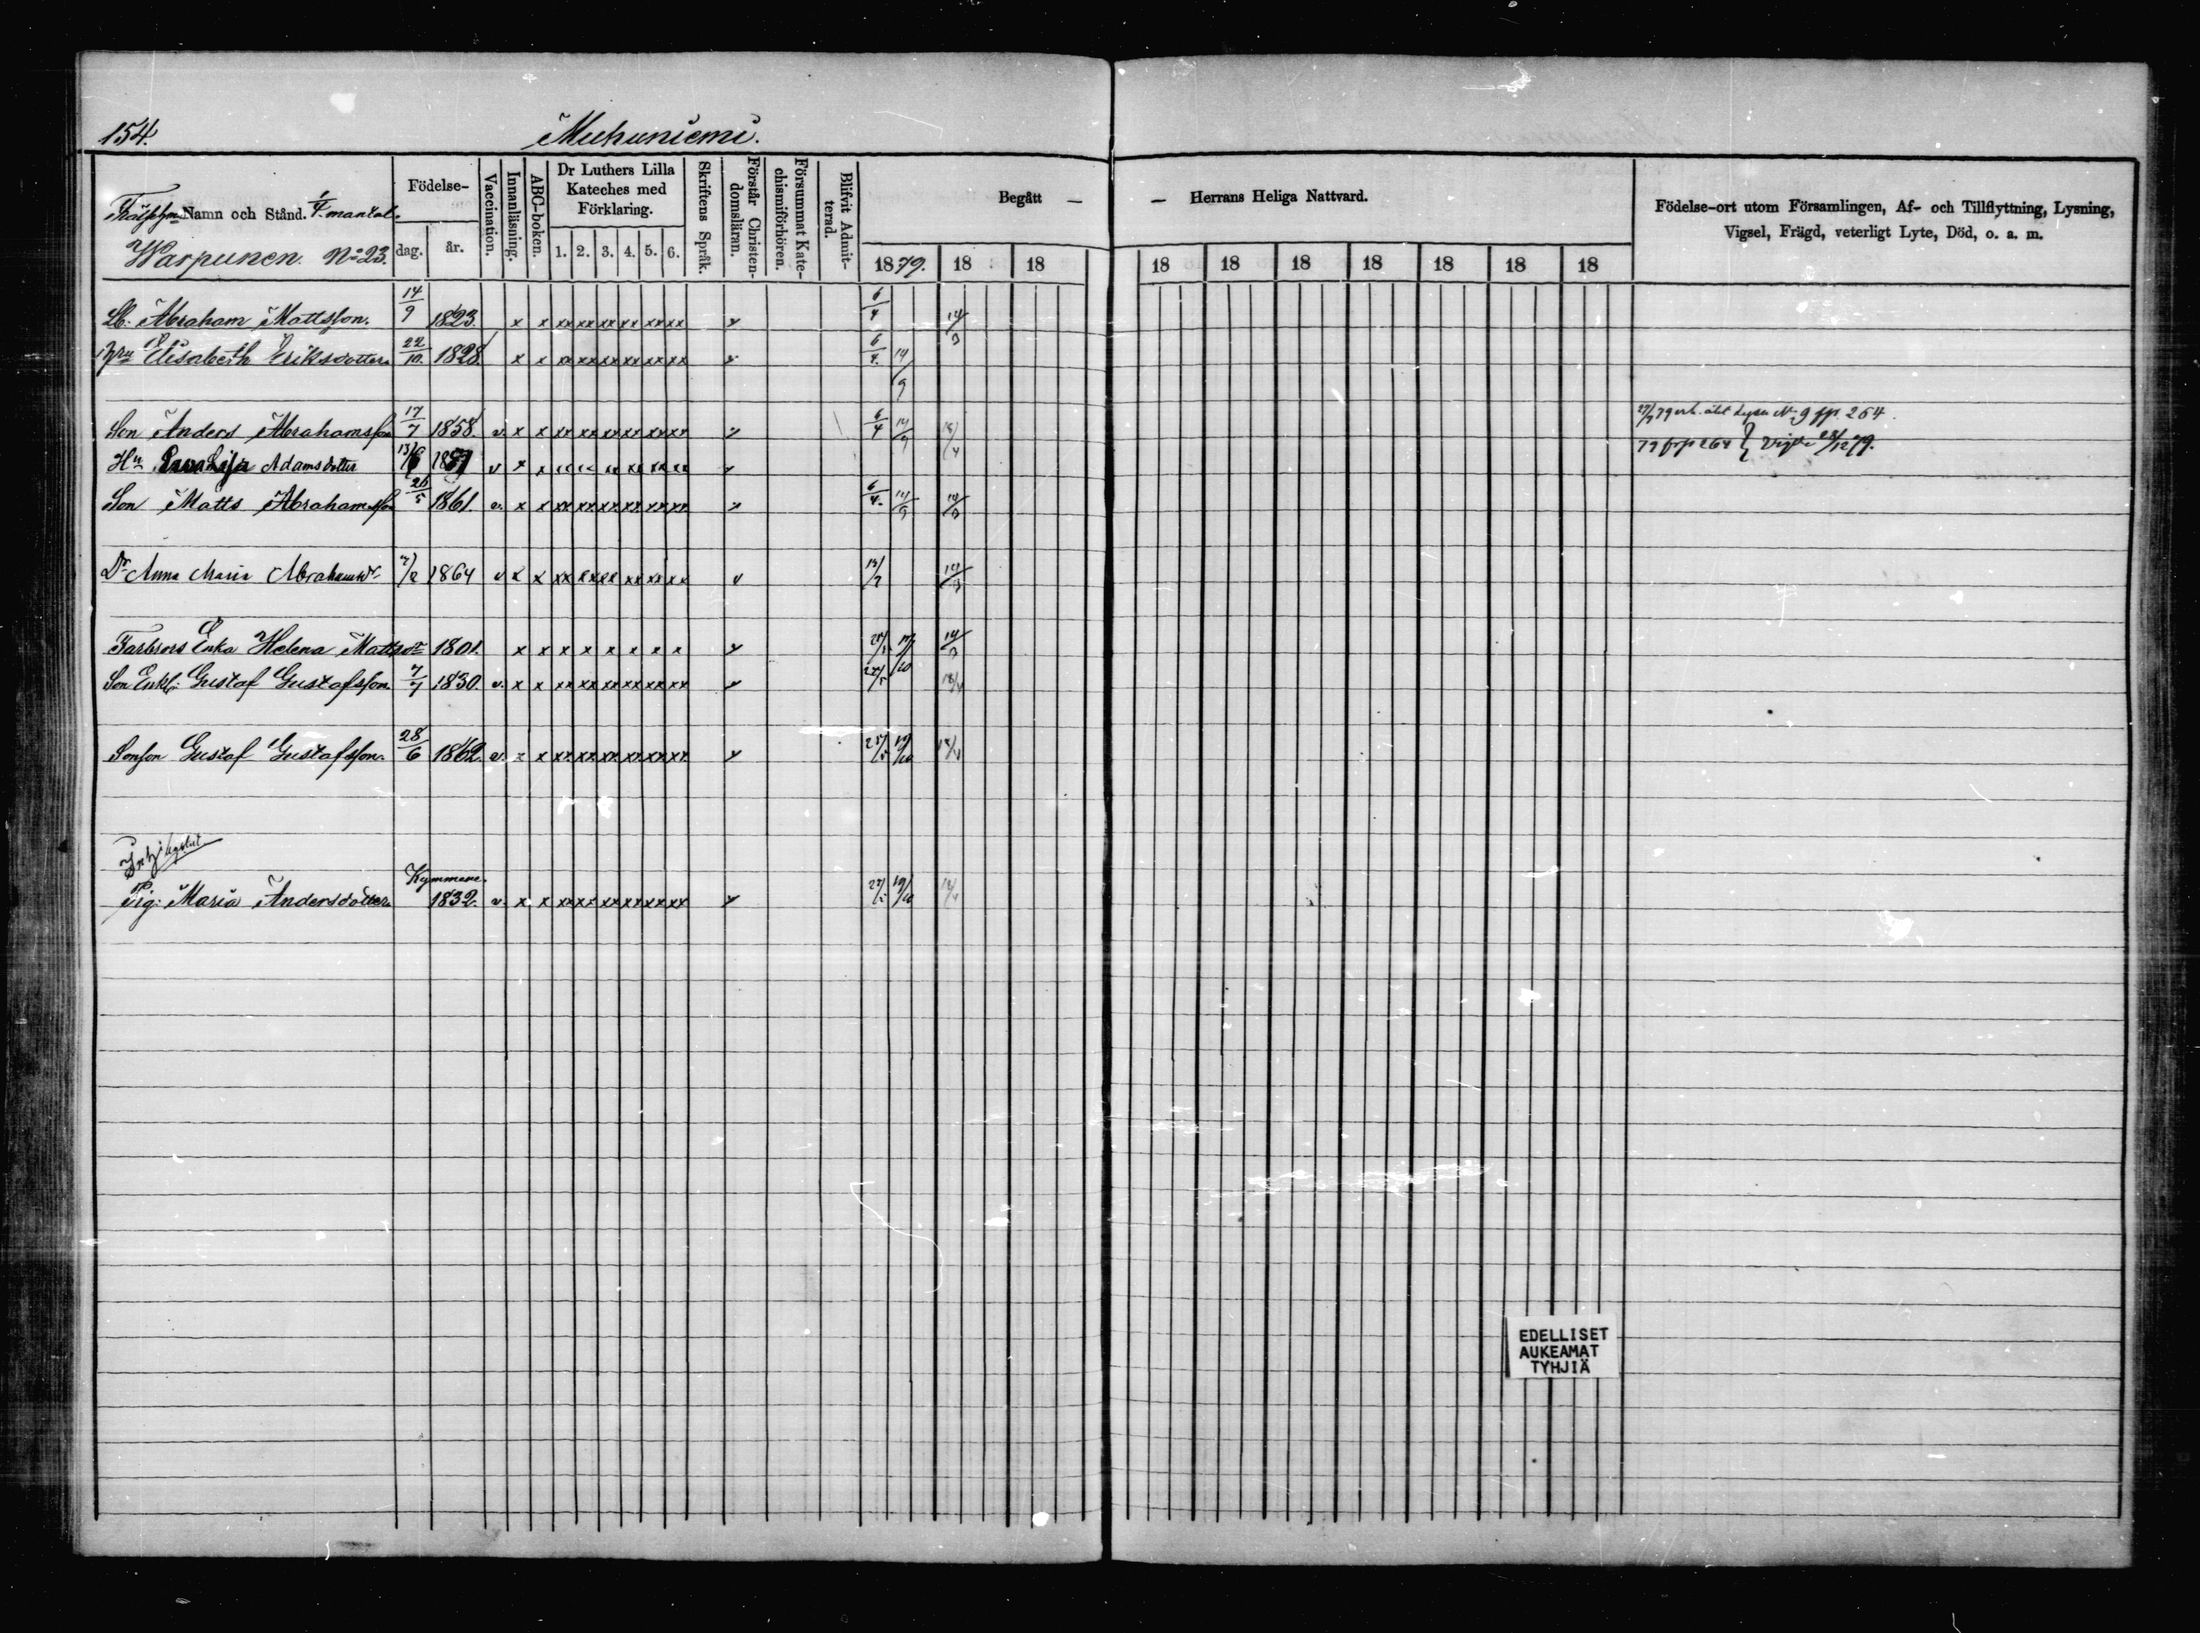 154.
Muhuniemi.
Namn och Stånd. 1/4 mantal.
Warpunen. No 23.
Födelse-
dag. år.
Vaccination.
Innanläsning.
ABC-boken.
Dr Luthers Lilla Kateches med Förklaring.
1. 2. 3. 4. 5. 6.
Skriftens Språk.
Förstår Christendomsläran.
Försummat Katechismiförhören.
Blifvit Admitterad.
Begått — — Herrans Heliga Nattvard.
1879. 18 18 18 18 18 18 18 18 18
Födelse-ort utom Församlingen, Af- och Tillflyttning, Lysning,
Vigsel, Frägd, veterligt Lyte, Död, o. a. m.
Abraham Mattsson. 14/9 1823. x x xx xx xx xx xx xx 6/4
Elisabeth Eriksdotter 22/10. 1828. x x xx xx xx xx xx xx 6/4. 14/9
Son Anders Abrahamsson 17/7 1858. v. x x xx xx xx xx xx xx 6/4 14/9 No 9 fp. 264.
Hu Adamsdotter v x x 79 frp 264 } Vigde 28/12 79.
Son Matts Abrahamsson 26/5 1861. v. x x xx xx xx xx xx xx 6/4.
Dr Anna Maria Abrahamsdr 1864 v x x
Farbrors Enka Helena Mattsdr 1801. x x x x x x x x
Son Enkl: Gustaf Gustafsson. 7/7 1830. v. x x xx xx xx xx xx xx
Sonson Gustaf Gustafsson. 28/6 1862. v. x x xx xx xx xx xx xx
Kymmene.
Pig: Maria Andersdotter 1832. v. x x xx xx xx xx xx xx 19/10
EDELLISET
AUKEAMAT
TYHJIÄ